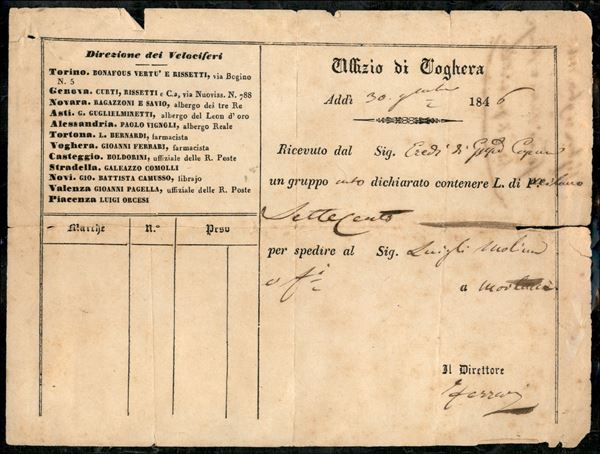 Direzione dei Velociferi
Torino. BONAFOUS VERTU' E BISSETTI, via Bogino
N. 5
Genova. CURTI, BISSETTI e C.a, via Nuoviss. N. 788
Novara. BAGAZZONI E SAVIO, albergo dei tre Re
Asti. G. GUGLIELMINETTI, albergo del Leon d'oro
Alessandria. PAOLO VIGNOLI, albergo Reale
Tortona. L. BERNARDI, farmacista
Voghera. GIOANNI FERRARI, farmacista
Casteggio. BOLDORINI, uffiziale delle R. Poste
Stradella. GALEAZZO COMOLLI
Novi. GIO. BATTISTA CAMUSSO, librajo
Valenza GIOANNI PAGELLA, uffiziale delle R. Poste
Piacenza LUIGI ORCESI
Marche N.° Peso
Uffizio di Voghera
Addì 30 1846
Ricevuto dal Sig. Eredi di
un gruppo dichiarato contenere L. di Milano
Settecento
per spedire al Sig. Luigi Molina
a
Il Direttore
Ferrari